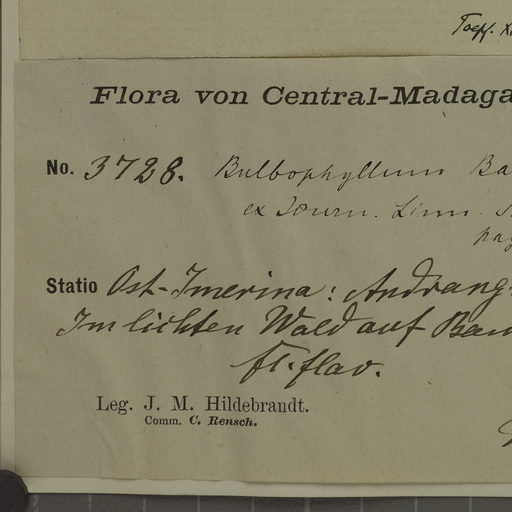 Flora von Central-Madaga
No. 3728. Bulbophyllum Ba
ex Journ. Linn. S
pag
Statio Ost-Imerina: Andrang
Im lichten Wald auf Bau
fl. flav.
Leg. J. M. Hildebrandt.
Comm. C. Rensch.